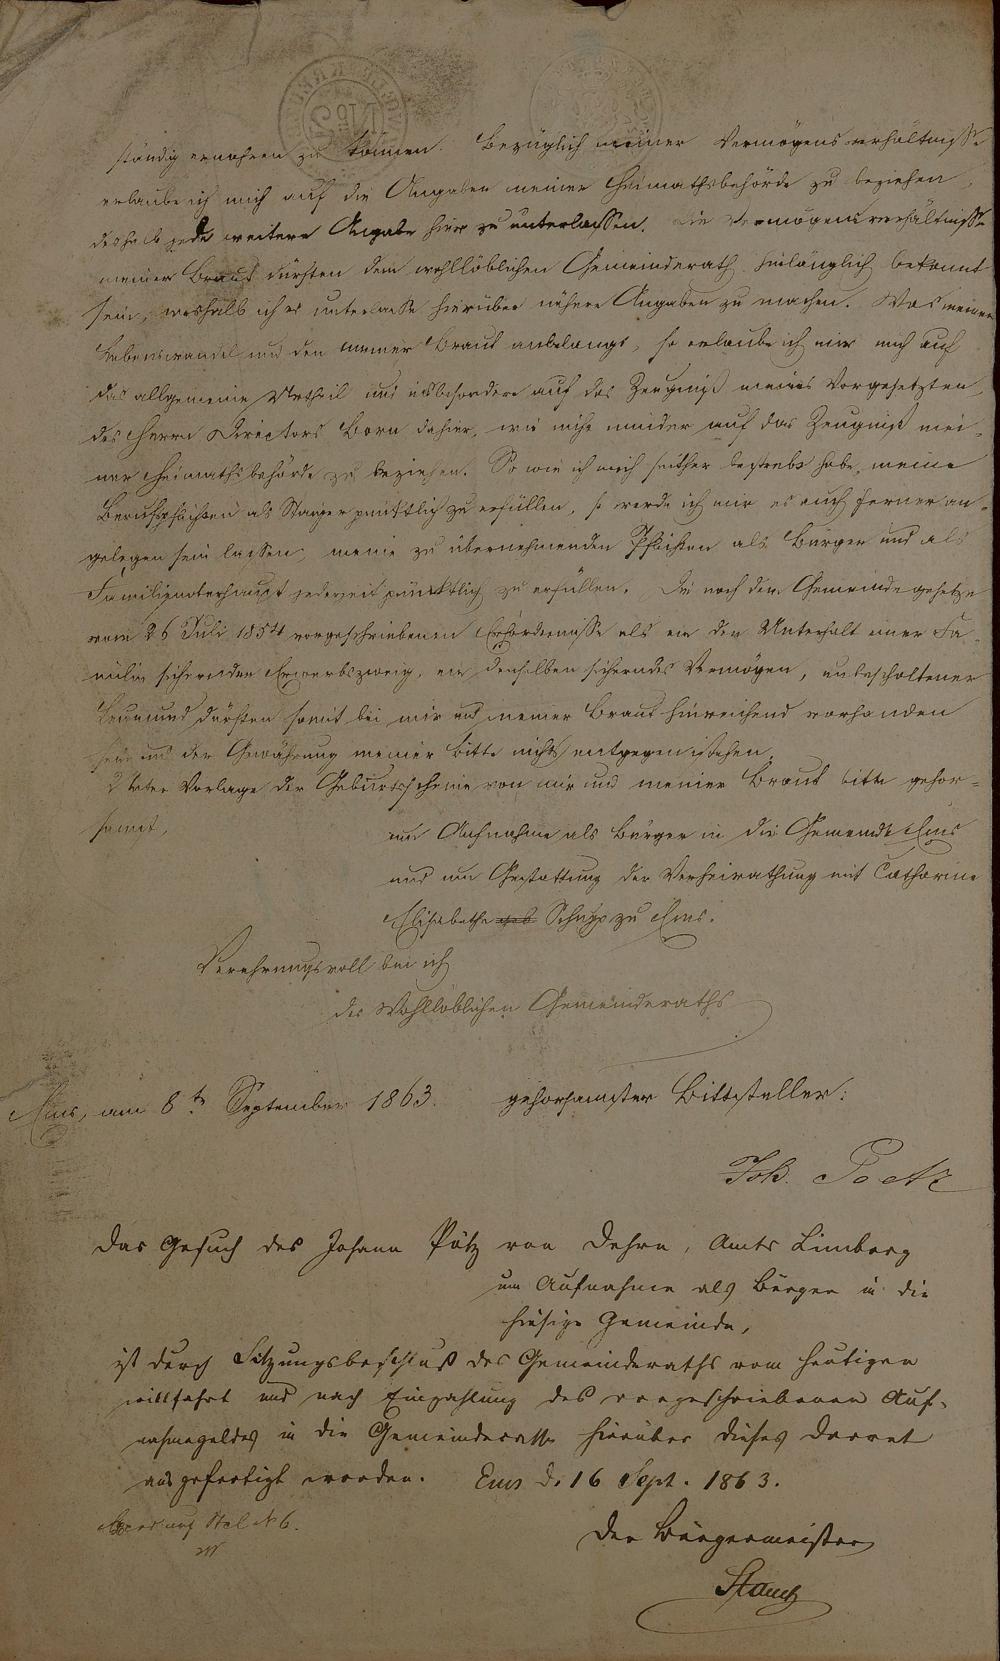 ständig ernähren zu können. Bezüglich meiner Vermögensverhältnisse
erlaube ich mich auf die Angaben meiner Heimathsbehörde zu beziehen,
deshalb jede weitere Angabe hier zu unterlassen. Die Vermögensverhältnisse
meiner Braut dürften dem wohllöblichen Gemeinderath hinlänglich bekannt
sein, weshalb ich es unterlasse hierüber nähere Angaben zu machen. Was meinen
Lebenswandel und den meiner Braut anbelangt, so erlaube ich mir mich auf
das allgemeine Urtheil und insbesondere auf das Zeugniß meines Vorgesetzten,
des Herrn Directors Born dahier, wie nicht minder auf das Zeugniß mei-
ner Heimathsbehörde zu beziehen. So wie ich mich seither bestrebt habe, meine
Berufspflichten als Steiger pünktlich zu erfüllen, so werde ich mir es auch ferner an-
gelegen sein lassen, meine zu übernehmenden Pflichten als Bürger und als
Familienoberhaupt jederzeit pünktlich zu erfüllen. Die nach dem Gemeindegesetze
vom 26 Juli 1854 vorgeschriebenen Erfordernisse als ein den Unterhalt einer Fa-
milie sichernden Erwerbszweig, ein denselben sicherndes Vermögen, unbescholtener
Leumund dürften somit bei mir und meiner Braut hinreichend vorhanden
sein und der Gewährung meiner Bitte nichts entgegenstehen.
Unter Vorlage der Geburtsscheine von mir und meiner Braut bitte gehor-
samst,
um Aufnahme als Bürger in die Gemeinde Ems
und um Gestattung der Verheirathung mit Catharine
Elisabethe Schupp zu Ems.
Verehrungsvoll bin ich
des Wohllöblichen Gemeinderaths
Ems, am 8te September 1863. gehorsamster Bittsteller:
Joh. Poetz
Das Gesuch des Johann Pötz von Dehrn, Amts Limburg
um Aufnahme als Bürger in die
hiesige Gemeinde,
ist durch Sitzungsbeschluß des Gemeinderaths vom heutigen
willfahrt und nach Einzahlung des vorgeschriebenen Auf-
nahmegeldes in die Gemeindecasse hierüber dieses Decret
ausgefertigt worden. Ems d. 16 Sept. 1863.
Der Bürgermeister